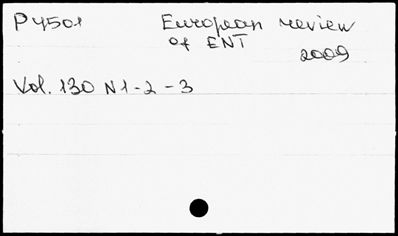 P4501 European review
of ENT
2009
Vol. 130 N1-2-3